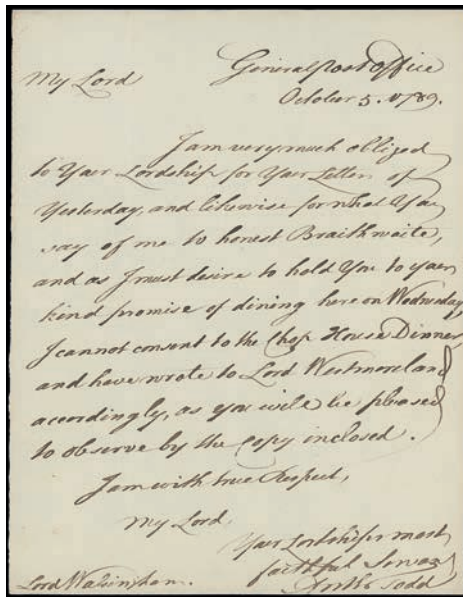 General post Office
October 5. 1789.
My Lord
I am very much obliged
to Your Lordship for Your Letter of
Yesterday, and likewise for what You
say of me to honest Braithwaite,
and as I must desire to hold You to your
kind promise of dining here on Wednesday
I cannot consent to the Chop House Dinner
and have wrote to Lord Westmoreland
accordingly, as you will be pleased
to observe by the Copy inclosed.
I am with true Respect,
My Lord,
Your Lordships most
faithful Servt
Anth Todd
Lord Walsingham.